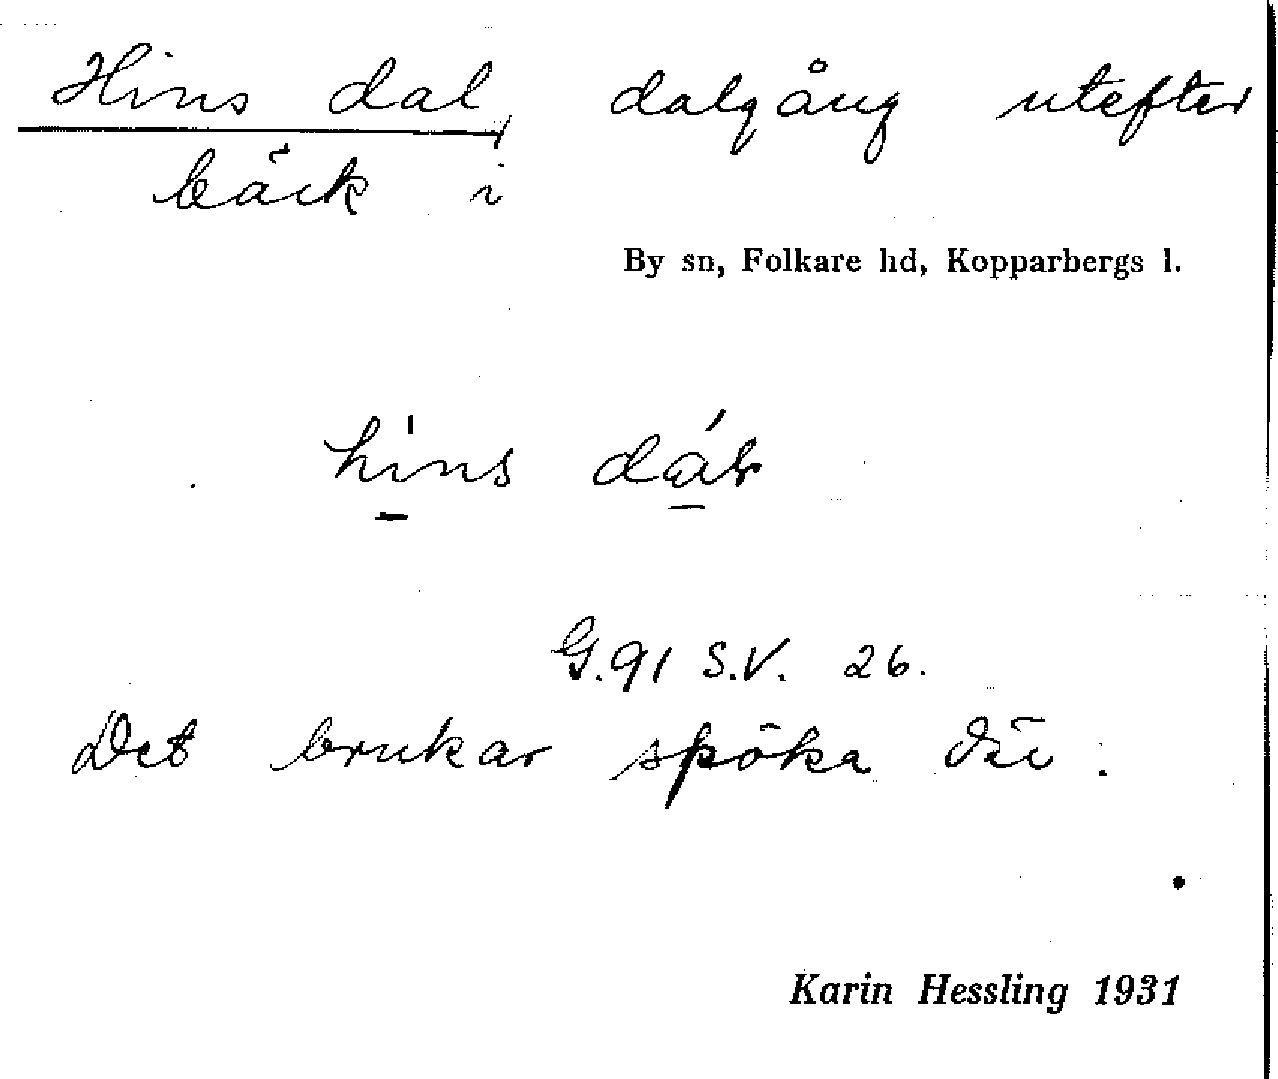 Hins dal, dalgång utefter
bäck i
By sn, Folkare hd, Kopparbergs l.
hins
G.91 S.V. 26.
Det brukar spöka där.
Karin Hessling 1931